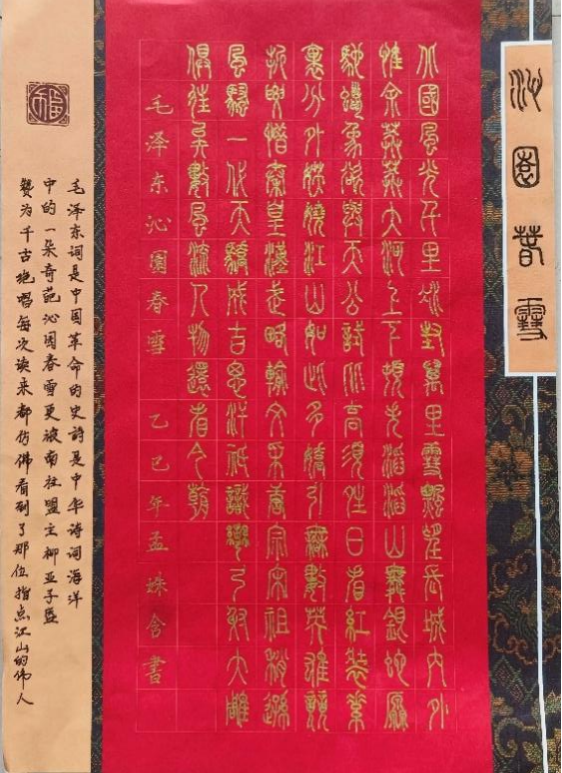 沁園春雪
北國風光千里冰封萬里雪飄望長城內外
惟余莽莽大河上下頓失滔滔山舞銀蛇原
馳蠟象欲與天公試比高須晴日看紅裝素
裹分外妖嬈江山如此多嬌引無數英雄競
折腰惜秦皇漢武略輸文采唐宗宋祖稍遜
風騷一代天驕成吉思汗祗識彎弓射大雕
俱往矣數風流人物還看今朝
毛泽东沁園春雪 乙巳年孟姝含書
毛泽东词是中国革命的史詩是中华诗词海洋
中的一朵奇葩沁园春雪更被南社盟主柳亚子盛
赞为千古绝唱每次读来都仿佛看到了那位指点江山的伟人